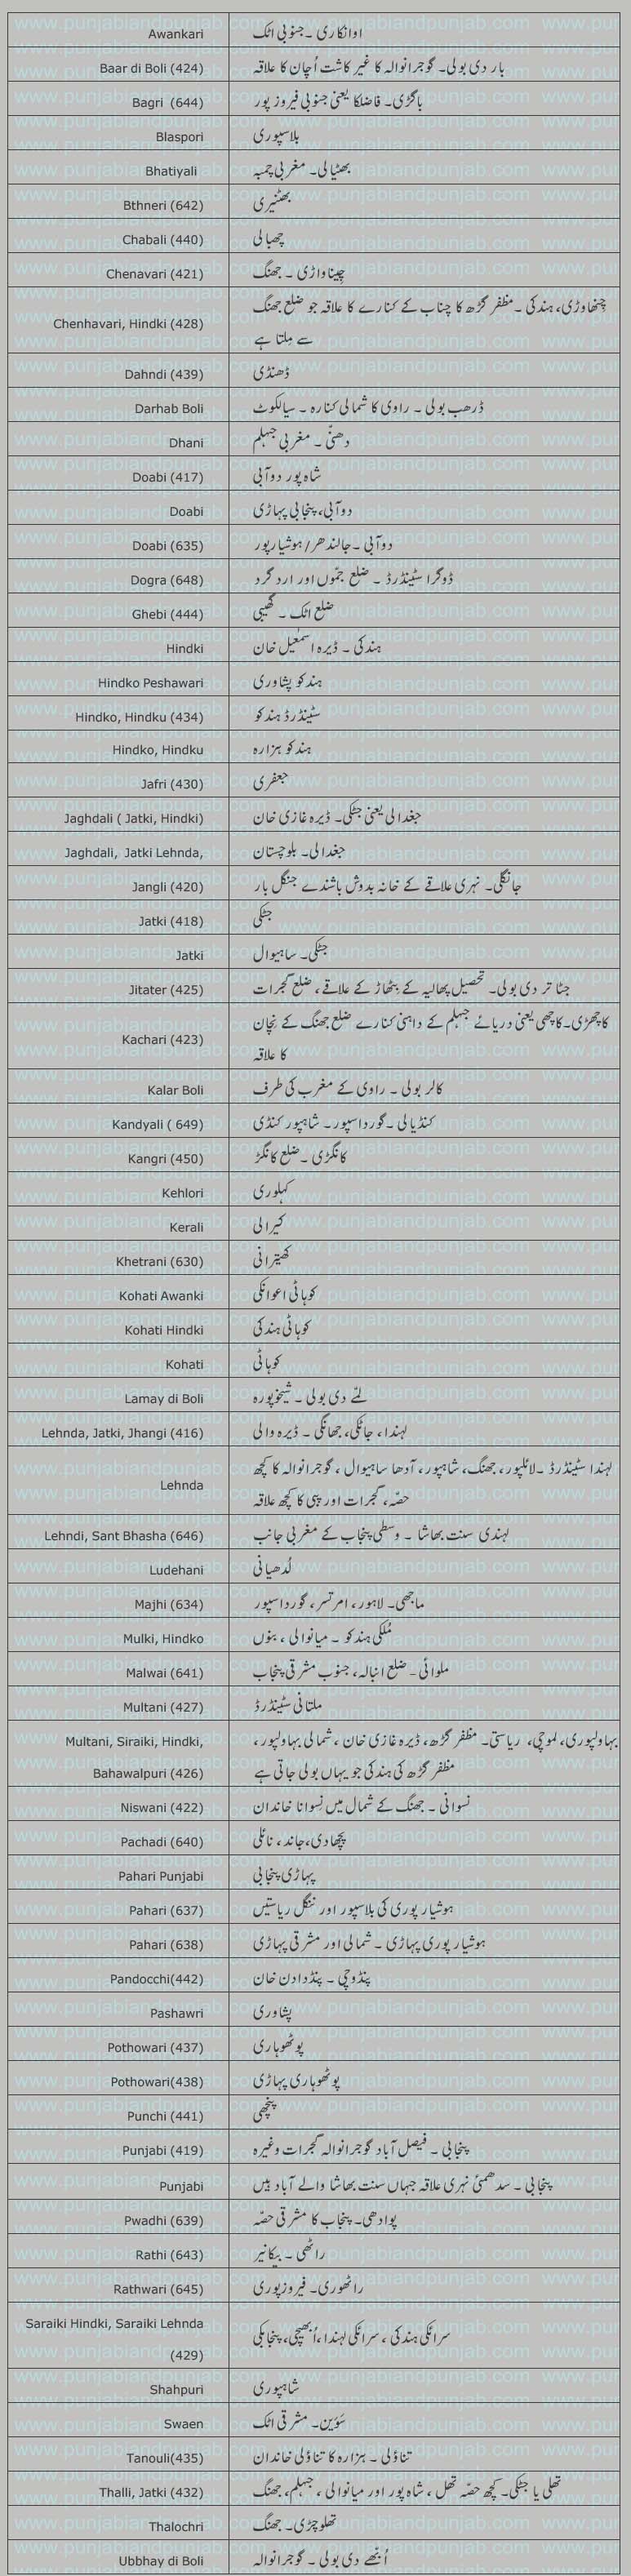 Awankari اوانکاری ۔جنوبی اٹک
Baar di Boli (424) بار دی بولی۔ گوجرانوالہ کا غیر کاشت اُچان کا علاقہ
Bagri (644) باگڑی۔ فاضلکا یعنی جنوبی فیروز پور
Blaspori بلاسپوری
Bhatiyali بھٹیالی۔ مغربی چمبہ
Bthneri (642) بھٹنیری
Chabali (440) چھبالی
Chenavari (421) چیناواڑی ۔ جھنگ
Chenhavari, Hindki (428) چنھاوڑی، ہندکی ۔مظفر گڑھ کا چناب کے کنارے کا علاقہ جو ضلع جھنگ
سے مِلتا ہے
Dahndi (439) ڈھنڈی
Darhab Boli ڈرھب بولی ۔ راوی کا شمالی کنارہ ۔ سیالکوٹ
Dhani دھنّی ۔ مغربی جہلم
Doabi (417) شاہ پور دوآبی
Doabi دوآبی، پنجابی پہاڑی
Doabi (635) دوآبی ۔جالندھر/ہوشیارپور
Dogra (648) ڈوگرا سٹینڈرڈ ۔ ضلع جمّوں اور ارد گرد
Ghebi (444) ضلع اٹک ۔ گھیبی
Hindki ہندکی ۔ ڈیرہ اسمٰعیل خان
Hindko Peshawari ہندکو پشاوری
Hindko, Hindku (434) سٹینڈرڈ ہندکو
Hindko, Hindku ہندکو ہزارہ
Jafri (430) جعفری
Jaghdali ( Jatki, Hindki) جغدالی یعنی جٹکی۔ ڈیرہ غازی خان
Jaghdali, Jatki Lehnda, جغدالی۔ بلوچستان
Jangli (420) جانگلی۔ نہری علاقے کے خانہ بدوش باشندے جنگل بار
Jatki (418) جٹکی
Jatki جٹکی۔ ساہیوال
Jitater (425) جٹا تر دی بولی۔ تحصیل پھالیہ کے بٹھاڑ کے علاقے، ضلع گجرات
Kachari (423) کاچھڑی۔کاچھی یعنی دریائے جہلم کے داہنی کنارے ضلع جھنگ کے نِچان
کا علاقہ
Kalar Boli کالر بولی ۔ راوی کے مغرب کی طرف
Kandyali ( 649) کنڈیالی ۔گورداسپور۔ شاہپور کنڈی
Kangri (450) کانگڑی ۔ضلع کانگڑ
Kehlori کہلوری
Kerali کیرالی
Khetrani (630) کھیترانی
Kohati Awanki کوہاٹی اعوانکی
Kohati Hindki کوہاٹی ہندکی
Kohati کوہاٹی
Lamay di Boli لمّے دی بولی ۔ شیخوپورہ
Lehnda, Jatki, Jhangi (416) لہندا، جاٹکی، جھانگی ۔ ڈیرہ والی
Lehnda لہندا سٹینڈرڈ ۔لائلپور، جھنگ، شاہپور، آدھا ساہیوال ، گوجرانوالہ کا کچھ
حصّہ، گجرات اور پبی کا کچھ علاقہ
Lehndi, Sant Bhasha (646) لہندی سنت بھاشا ۔ وسطی پنجاب کے مغربی جانب
Ludehani لُدھیانی
Majhi (634) ماجھی۔ لاہور، امرتسر، گورداسپور
Mulki, Hindko مُلکی ہندکو ۔ میانوالی ، بنوں
Malwai (641) ملوائی - ضلع انبالہ، جنوب مشرقی پنجاب
Multani (427) ملتانی سٹینڈرڈ
Multani, Siraiki, Hindki, بہاولپوری، لموچی، ریاستی۔ مظفر گڑھ، ڈیرہ غازی خان ، شمالی بہاولپور،
Bahawalpuri (426) مظفر گڑھ کی ہندکی جو یہاں بولی جاتی ہے
Niswani (422) نسوانی ۔ جھنگ کے شمال میں نِسوانا خاندان
Pachadi (640) پچھادی،جاند، نائلی
Pahari Punjabi پہاڑی پنجابی
Pahari (637) ہوشیار پوری کی بلاسپور اور ننگل ریاستیں
Pahari (638) ہوشیار پوری پہاڑی ۔ شمالی اور مشرقی پہاڑی
Pandocchi(442) پنڈوچی ۔ پنڈدادن خان
Pashawri پشاوری
Pothowari (437) پوٹھوہاری
Pothowari(438) پوٹھوہاری پہاڑی
Punchi (441) پنچھی
Punjabi (419) پنجابی ۔ فیصل آباد گوجرانوالہ گجرات وغیرہ
Punjabi پنجابی ۔ سدھمئی نہری علاقہ جہاں سنت بھاشا والے آباد ہیں
Pwadhi (639) پوادھی۔ پنجاب کا مشرقی حصّہ
Rathi (643) راٹھی ۔ بیکانیر
Rathwari (645) راٹھوری۔ فیروزپوری
Saraiki Hindki, Saraiki Lehnda سرائکی ہندکی ، سرائکی لہندا، اُبھیچی، پنجابکی
(429)
Shahpuri شاہپوری
Swaen سَوَین۔ مشرقی اٹک
Tanouli(435) تناؤلی ۔ ہزارہ کا تناؤلی خاندان
Thalli, Jatki (432) تھلی یا جٹکی۔ کچھ حصّہ تھل ، شاہ پور اور میانوالی ، جہلم، جھنگ
Thalochri تھلوچڑی۔ جھنگ
Ubbhay di Boli اُبھے دی بولی ۔ گوجرانوالہ